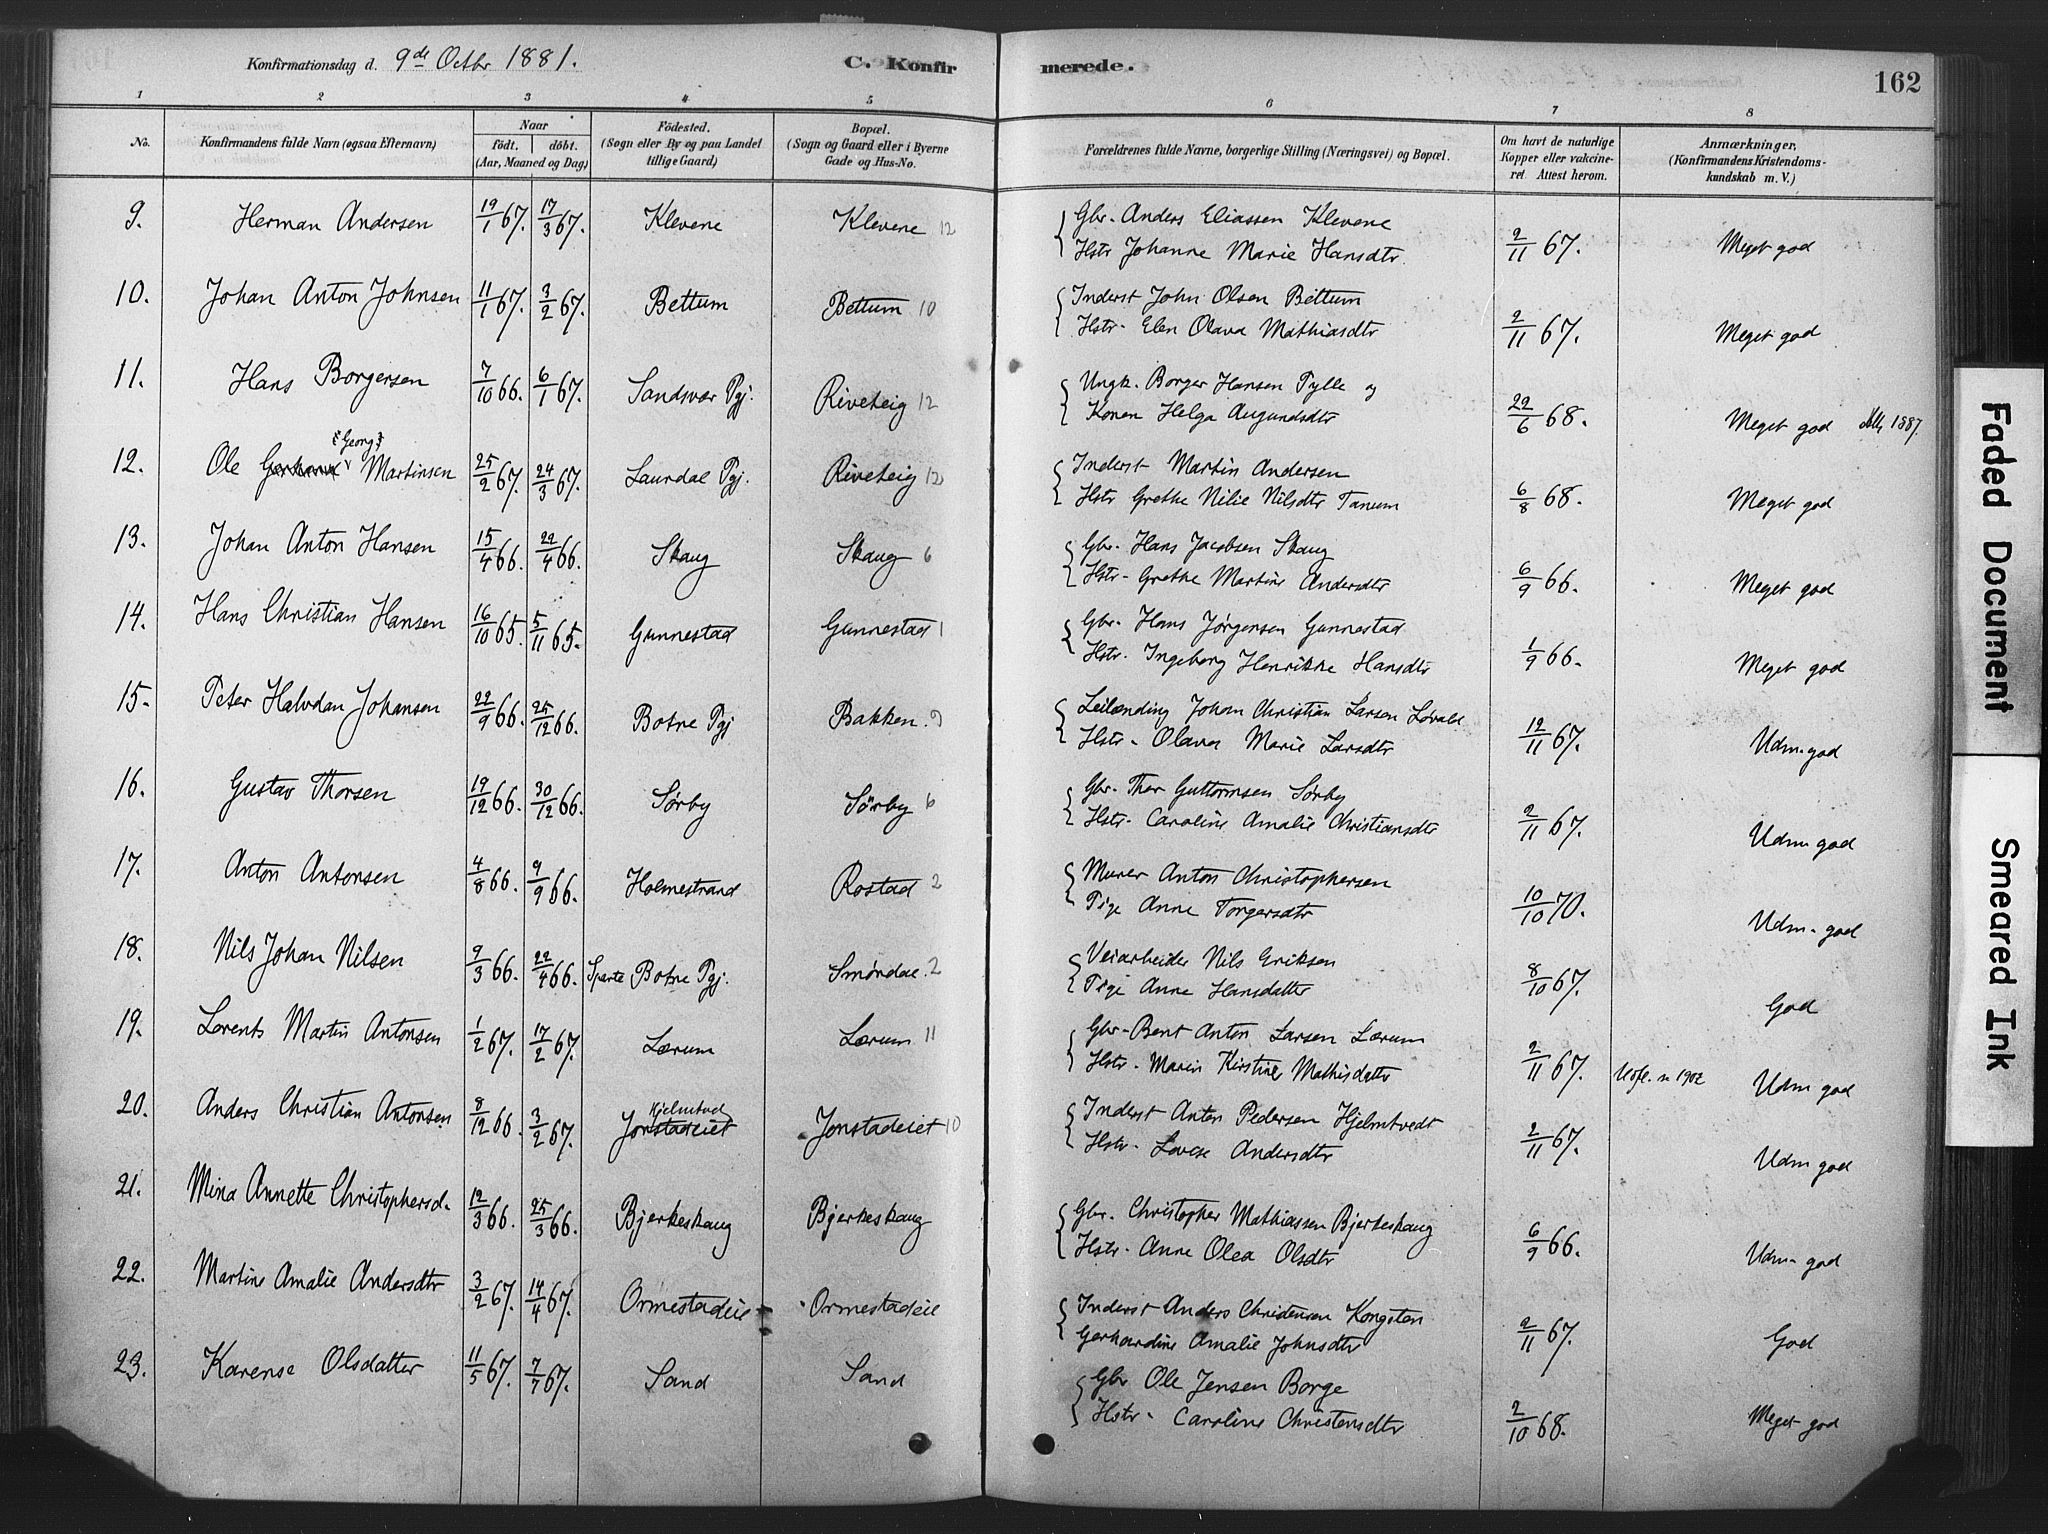 Konfirmationsdag d. 9de Octbr 1881.
C. Konfirmerede.
162
1 2 3 4 5 6 7 8
No.
Konfirmandens fulde Navn (ogsaa Efternavn)
Naar
födt. döbt.
(Aar, Maaned og Dag)
Födested.
(Sogn eller By og paa Landet
tillige Gaard)
Bopæl.
(Sogn og Gaard eller i Byerne
Gade og Hus-No.
Forældrenes fulde Navne, borgerlige Stilling (Næringsvei) og Bopæl.
Om havt de naturlige
Kopper eller vakcine-
ret. Attest herom.
Anmærkninger.
(Konfirmandens Kristendoms-
kundskab m. V.)
9. Herman Andersen 19/1 67. 17/3 67. Klevene Klevene 12
Gbr. Anders Eliassen Klevene
Hstr Johanne Marie Hansdtr. 2/11 67. Meget god
10. Johan Anton Johnsen 11/1 67. 3/2 67. Bettum Bettum 10
Inderst John Olsen Bettum
Hstr. Elen Olava Mathiasdtr 2/11 67. Meget god
11. Hans Borgersen 7/10 66. 6/1 67. Sandsvær Pgj. Riveteig 12
Ungk. Borger Hansen Tylle og
Konen Helga Augundsdtr 22/6 68. Meget god 1887.
12. Ole Georg Martinsen 25/2 67. 24/3 67. Laurdal Pgj. Riveteig 12
Inderst Martin Andersen
Hstr Grethe Nilie Nilsdtr Tanum 6/8 68. Meget god
13. Johan Anton Hansen 15/4 66. 22/4 66. Skaug Skaug 6
Gbr. Hans Jacobsen Skaug
Hstr. Grethe Martine Andersdtr 6/9 66. Meget god
14. Hans Christian Hansen 16/10 65. 5/11 65. Gunnestad Gunnestad 1
Gbr. Hans Jørgensen Gunnestad
Hstr. Ingeborg Henrikke Hansdtr 1/9 66. Meget god
15. Peter Halvdan Johansen 22/9 66. 25/12 66. Botne Pgj Bakken. 9
Leilænding Johan Christian Larsen Løvald
Hstr. Olava Marie Larsdtr 12/11 67. Udm. god
16. Gustav Thorsen 19/12 66. 30/12 66. Sørby Sørby 6
Gbr. Thor Guttormsen Sørby
Hstr. Caroline Amalie Christiansdtr 2/11 67. Udm. god
17. Anton Antonsen 4/8 66. 9/9 66. Holmestrand Rostad 2
Murer Anton Christophersen
Pige Anne Torgersdtr 10/10 70. Udm. god
18. Nils Johan Nilsen 9/3 66. 22/4 66. Botne Pgj. Smørdal. 2
Veiarbeider Nils Eriksen
Pige Anne Hansdatter 8/10 67. God
19. Lorents Martin Antonsen 1/2 67. 17/2 67. Lærum Lærum 11
Gbr. Bent Anton Larsen Lærum
Hstr. Maren Kirstine Mathisdatter 2/11 67. 1902 Udm god
20. Anders Christian Antonsen 8/12 66. 3/2 67. Jonstadeiet Jonstadeiet 10
Inderst Anton Pedersen Hjelmtvedt
Hstr. Lovise Andersdtr 2/11 67. Udm god
21. Mina Annette Christophersd. 12/3 66. 25/3 66. Bjerkeskaug Bjerkeskaug
Gbr. Christopher Mathiassen Bjerkeskaug
Hstr. Anne Olea Olsdtr 6/9 66. Udm. god
22. Martine Amalie Andersdtr 3/2 67. 14/4 67. Ormestadeie Ormestadeie
Inderst Anders Christensen Kongsten
Gerhardine Amalie Johnsdtr 2/11 67. God
23. Karense Olsdatter 11/5 67. 7/7 67. Sand Sand
Gbr Ole Jensen Borge
Hstr. Caroline Christensdtr 2/10 68. Meget god
Faded Document
Smeared Ink